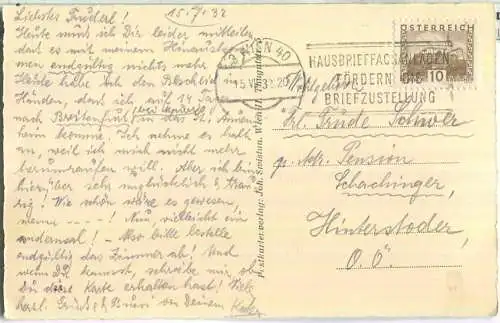 15./7.32
Liebstes Trüderl!
Heute muß ich Dir leider mitteilen,
daß es mit meinem Hinauskommen
endgültig nichts mehr
Heute habe ich den Bescheid in
Händen, daß ich auf 14 Tage
nach Breitenfurt in das St.
heim komme. Ich nehme es halt
an, weil ich mich nicht mehr
herumraufen will. Aber ich bin
hierüber sehr unglücklich & traurig!
Wie schön wäre es gewesen,
wenn ----! Nun, vielleicht ein
andermal! – Also bitte bestelle
endgültig das Zimmer ab! Und
wenn Du kannst, schreibe mir, ob
Du diese Karte erhalten hast! Viele
herzl. Grüße & Bussi von Deinem
Postkartenverlag: Joh. Swistun, Wien
WIEN 40
15.VII.32
HAUSBRIEFFACHANLAGEN
FÖRDERN DIE
BRIEFZUSTELLUNG
ÖSTERREICH
10
Frl. Trude
p. Adr. Pension
Schachinger,
Hinterstoder
O. Ö.